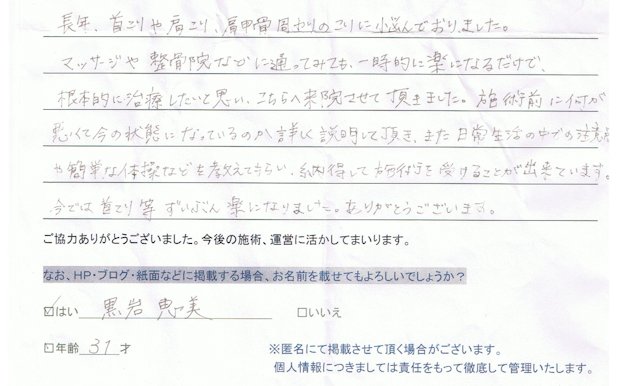 長年、首こりや肩こり、肩甲骨周辺のこりに小悩んでおりました。
マッサージや整骨院などに通ってみても、一時的に楽になるだけで、
根本的に治療したいと思い、こちらへ来院させて頂きました。施術前に何が
悪くて今の状態になっているのか詳しく説明して頂き、また日常生活の中での注意点
や簡単な体操などを教えてもらい、納得して施術を受けることが出来ています。
今では首こり等ずいぶん楽になりました。ありがとうございます。
ご協力ありがとうございました。今後の施術、運営に活かしてまいります。
なお、HP・ブログ・紙面などに掲載する場合、お名前を載せてもよろしいでしょうか？
☑はい 黒岩 恵美 □いいえ
□年齢 31 才 ※匿名にて掲載させて頂く場合がございます。
個人情報につきましては責任をもって徹底して管理いたします。